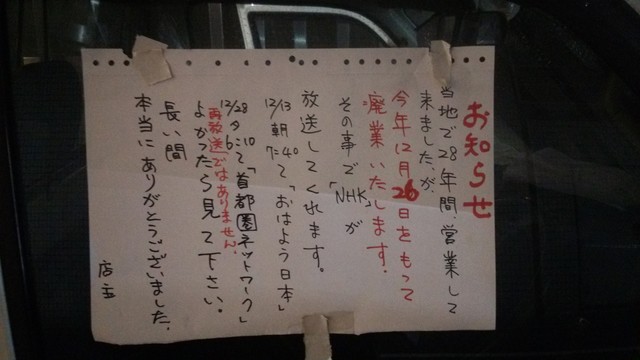 お知らせ
当地で28年間、営業して
来ました、が、
今年12月26日をもって
廃業いたします。
その事で「NHK」が
放送してくれます。
12/13 朝7:40にて「おはよう日本」
12/28 夕6:10にて「首都圏ネットワーク」
再放送ではありません。
よかったら見て下さい。
長い間
本当にありがとうございました。
店主